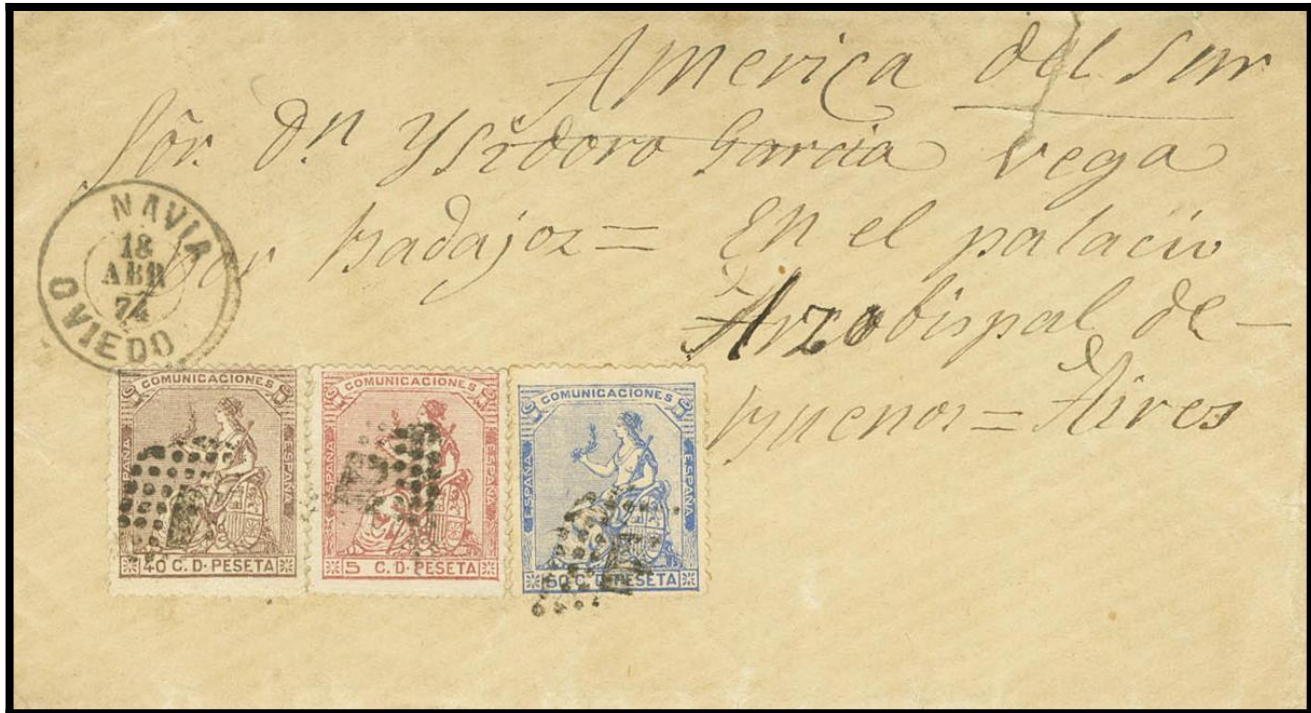 America del Sur
Sõr. Dn Ysidoro Garcia Vega
por Badajoz = En el palacio
Arzobispal de -
Buenos = Aires
NAVIA
18
ABR
74
OVIEDO
COMUNICACIONES
ESPAÑA
ESPAÑA
40 C. D. PESETA
COMUNICACIONES
ESPAÑA
ESPAÑA
5 C. D. PESETA
COMUNICACIONES
ESPAÑA
ESPAÑA
50 C. D. PESETA